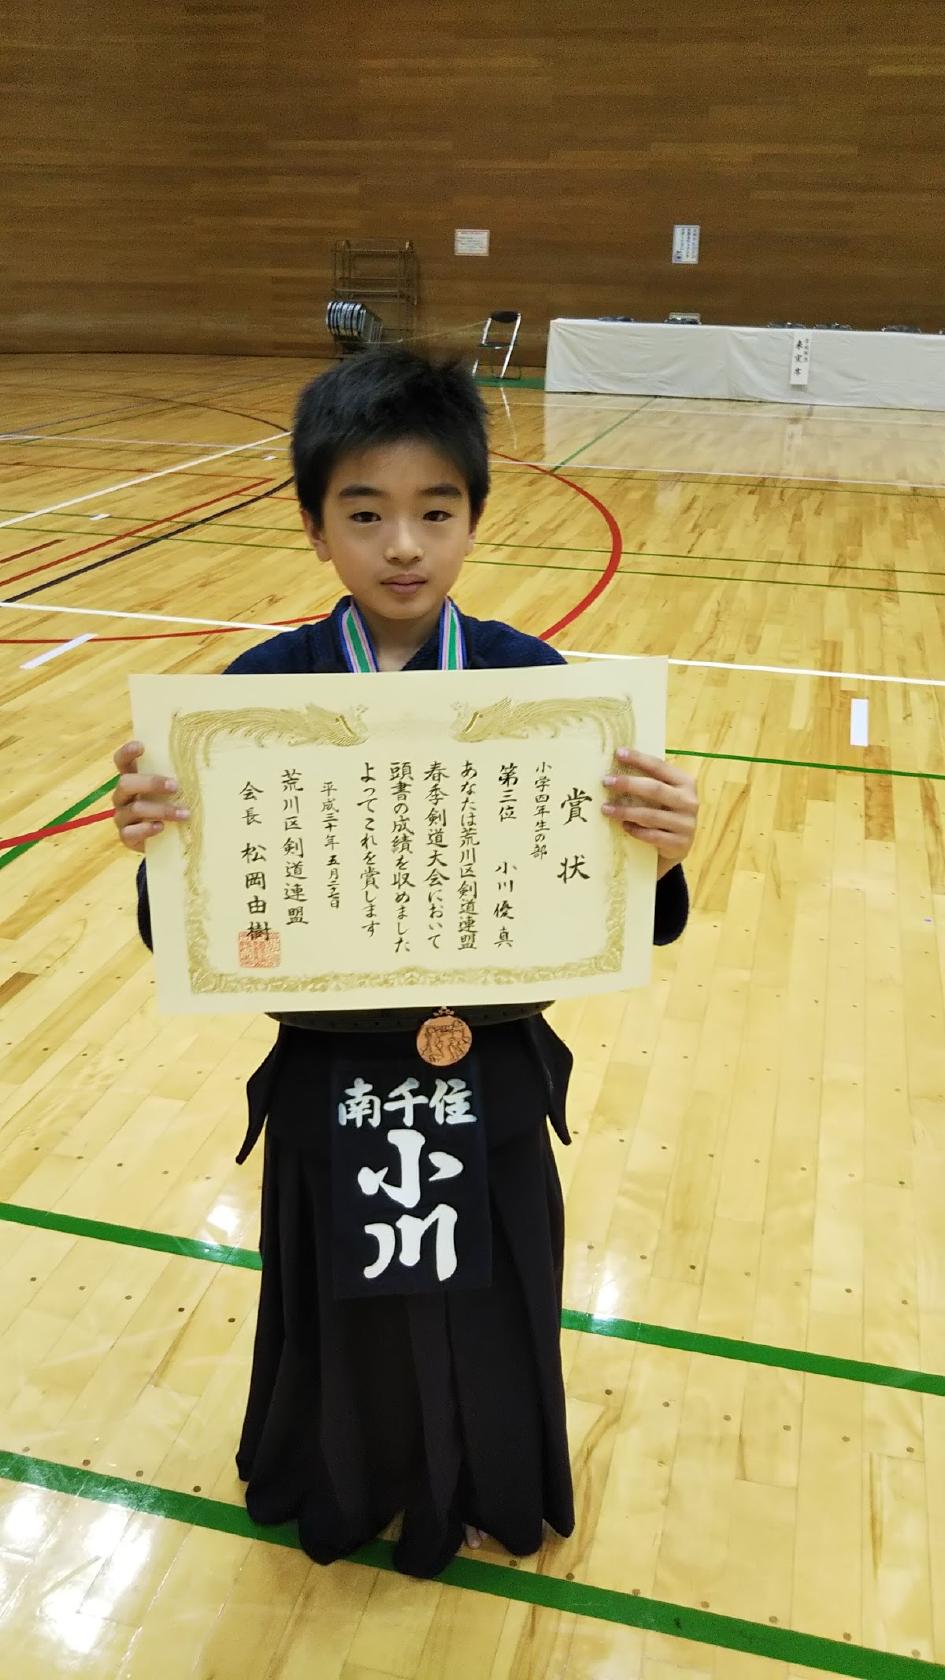 賞状
小学四年生の部
第三位 小川優真
あなたは荒川区剣道連盟
春季剣道大会において
頭書の成績を収めました
よってこれを賞します
平成三十年五月二七日
荒川区剣道連盟
会長 松岡由樹
南千住
小川
来賓席